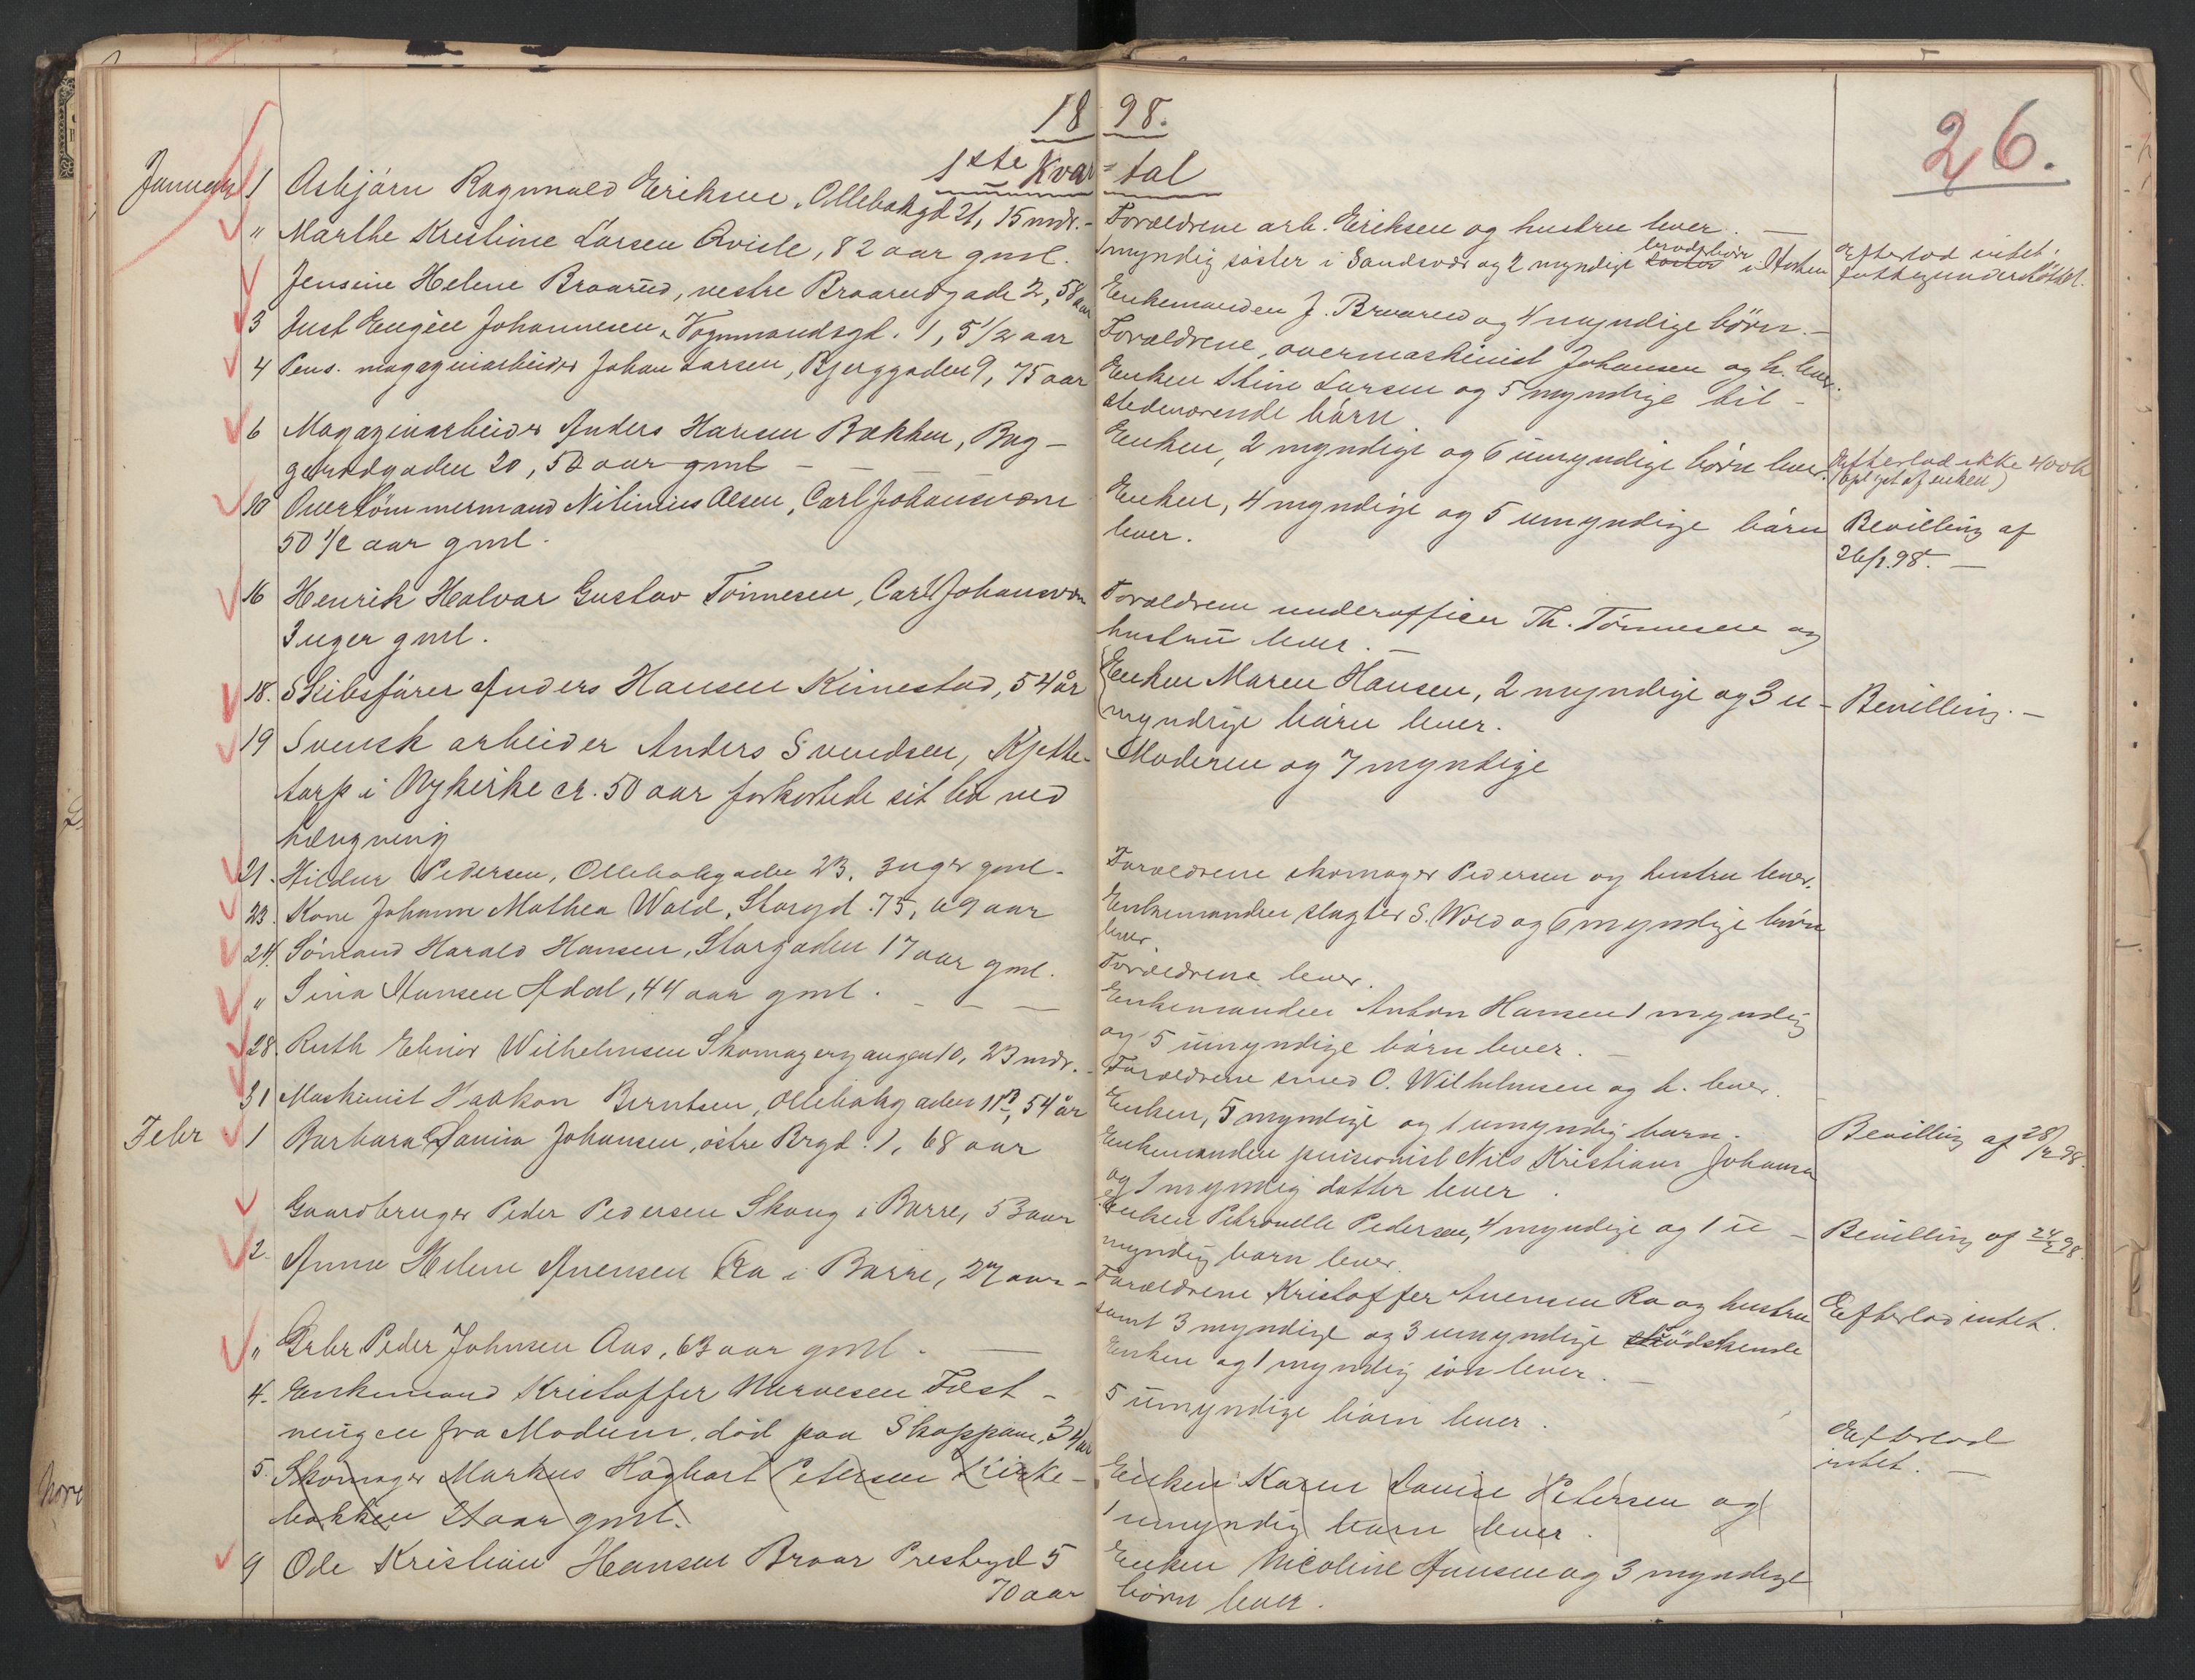 1898.
26.
1ste Kvar=tal
Januar 1 Asbjørn Ragnvald Eriksen, Ollebakgd 21, 15 mdr. -
Forældrene arb. Eriksen og hustru lever. —
" Marthe Kristine Larsen Qvisle, 82 aar gml.
1 myndig søster i Sandsvær og 2 myndige søster broderbørn i Horten
efterlod intet.
fattigunderstøttet.
Jensine Helene Braarud, vestre Braarudgade 2, 58 aar
Enkemanden J. Braarud og 4 myndige børn. —
3 Just Eugèn Johannesen, Vognmandsgd. 1, 5 1/2 aar
Forældrene, overmaskinist Johansen og h. lever.
4 Pens. magazinarbeider Johan Larsen, Bjerggaden 9, 75 aar
Enken Stine Larsen og 5 myndige til-
stedeværende børn
6 Magazinarbeider Anders Hansen Bakken, Bag-
gerødgaden 20, 52 aar gml — — —
Enken, 2 myndige og 6 umyndige børn lever.
Efterlod ikke 400 kr
(oplyst af enken)
10 Overtømmermand Nilinius Olsen, Carl Johansværn
50 1/2 aar gml.
Enken, 4 myndige og 5 umyndige børn
lever.
Bevilling af
26/1.98. —
16 Henrik Halvar Gustav Tønnesen, Carl Johansværn
3 uger gml.
Forældrene underofficer Th. Tønnesen og
hustru lever. —
18. Skibsfører Anders Hansen Kimestad, 54 år
Enken Maren Hansen, 2 myndige og 3 u-
myndige børn lever.
Bevilling. —
19 Svensk arbeider Anders Svendsen, Kjette-
torp i Nykirke cr. 50 aar forkortede sit liv ved
hængning
Moderen og 7 myndige
21. Hildur Pedersen, Ollebakgaden 23, 3 uger gml.
Forældrene skomager Pedersen og hustru lever.
23. Kone Johann Mathea Wold, Storgd. 75, 69 aar
Enkemanden slagter S. Wold og 6 myndige børn
lever.
24. Sømand Harald Hansen, Storgaden 17 aar gml.
Forældrene lever.
" Sina Hansen Adal, 44 aar gml. — — —
Enkemanden Anton Hansen 1 myndig
og 5 umyndige børn lever. —
28. Ruth Elinor Wilhelmsen Skomagergangen 10, 23 mdr. -
Forældrene smed O. Wilhelmsen og h. lever.
31 Maskinist Haakon Berntsen, Ollebakgaden 11B, 54 år
Enken, 5 myndige og 1 umyndig barn.
Bevilling af 28/2 98.
Febr 1 Barbara Lovisa Johansen, østre Brgd. 1, 68 aar
Enkemanden pensionist Nils Kristian Johansen
og 1 myndig datter lever.
Gaardbruger Peder Pedersen Skoug i Borre, 53 aar
Enken Petronelle Pedersen, 4 myndige og 1 u-
myndig barn lever.
Bevilling af 24/2 98.
2. Anna Helene Avensen Ra i Borre, 27 aar —
Forældrene Kristoffer Avensen Ra og hustru
samt 3 myndige og 3 umyndige sødskende
Efterlod intet.
" Grbr Peder Johnsen Aas, 63 aar gml. —
Enken og 1 myndig søn lever. —
4. Enkemand Kristoffer Fæst-
ningen fra Modum, død paa Skoppum, 34 aar
5 umyndige børn lever.
Efterlod
intet. —
5. Skomager Markus Hagbart Petersen Kirke-
bakken 21 aar gml.
Enken Karen Lovise Petersen og
1 umyndig barn lever.
9 Ole Kristian Hansen Braar Prestegd 5
70 aar
Enken Nicoline Hansen og 3 myndige
børn lever.